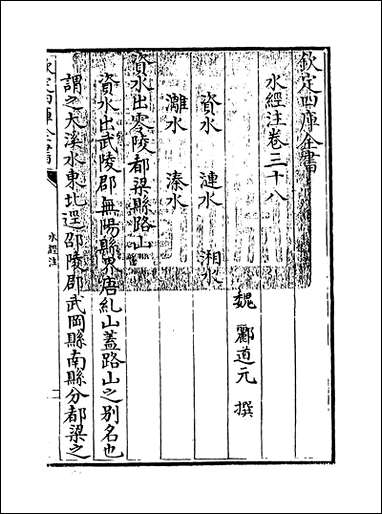 欽定四庫全書
水經注卷三十八
魏 酈道元 撰
資水 漣水 湘水
灕水 溱水
資水出零陵都梁縣路山
資水出武陵郡無陽縣界唐糺山蓋路山之别名也
謂之大溪水東北逕邵陵郡武岡縣南縣分都梁之
欽定四庫全書
水經注